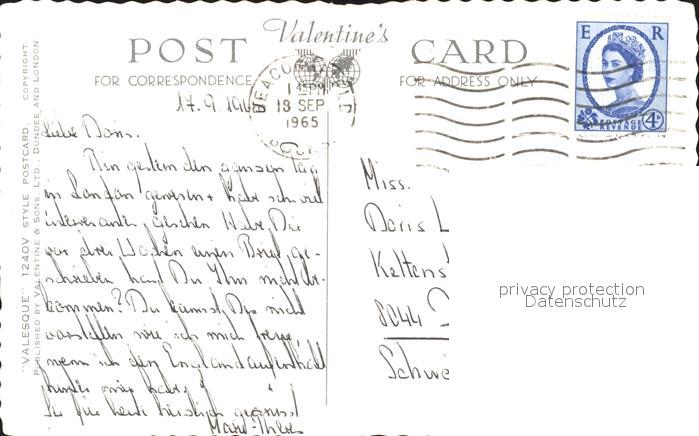 POST Valentine's CARD
FOR CORRESPONDENCE
FOR ADDRESS ONLY
E R
POSTAGE
REVENUE 4D
1 45PM
13 SEP
1965
17.9.196
Liebe Doris.
Bin gestern den ganzen Tag
in London gewesen + habe sehr viel
interessantes gesehen. Habe Dir
vor drei Wochen einen Brief ge-
schrieben, hast Du ihn nicht be-
kommen? Du kannst Dir nicht
vorstellen wie ich mich freue,
wenn ich den Englandaufenthalt
hinter mir habe!
Sei für heute herzlich gegrüsst
Miss.
Doris L
Keltens
8044
Schwe
privacy protection
Datenschutz
"VALESQUE" 1240V STYLE POSTCARD. COPYRIGHT.
PUBLISHED BY VALENTINE & SONS, LTD., DUNDEE AND LONDON.